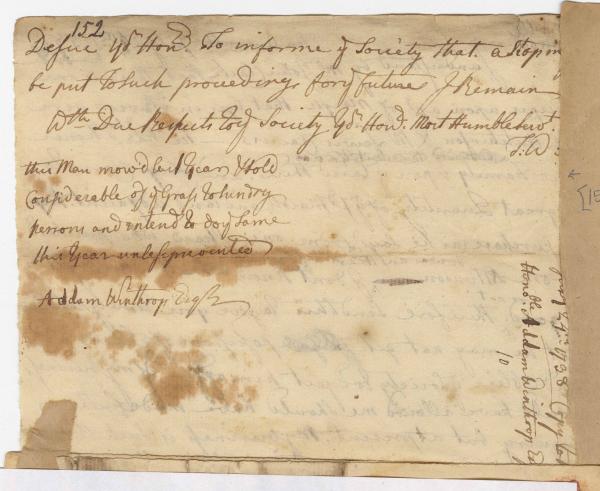 152
Desire yr Honr. To informe ye Society that a Stop my
be put To Such proceedings for ye future J Remain
Wth Due Respects to ye Society Yr. Honrs. Most Humble Servt.
T:W
this Man mow'd last Year & Sold
Considerable of ye Grass to Sundry
persons and intends to do ye Same
this Year unless prevented
Addam Winthrop Esqr
1738 Copy to
Honble. Addam Winthrop Es
10
[15